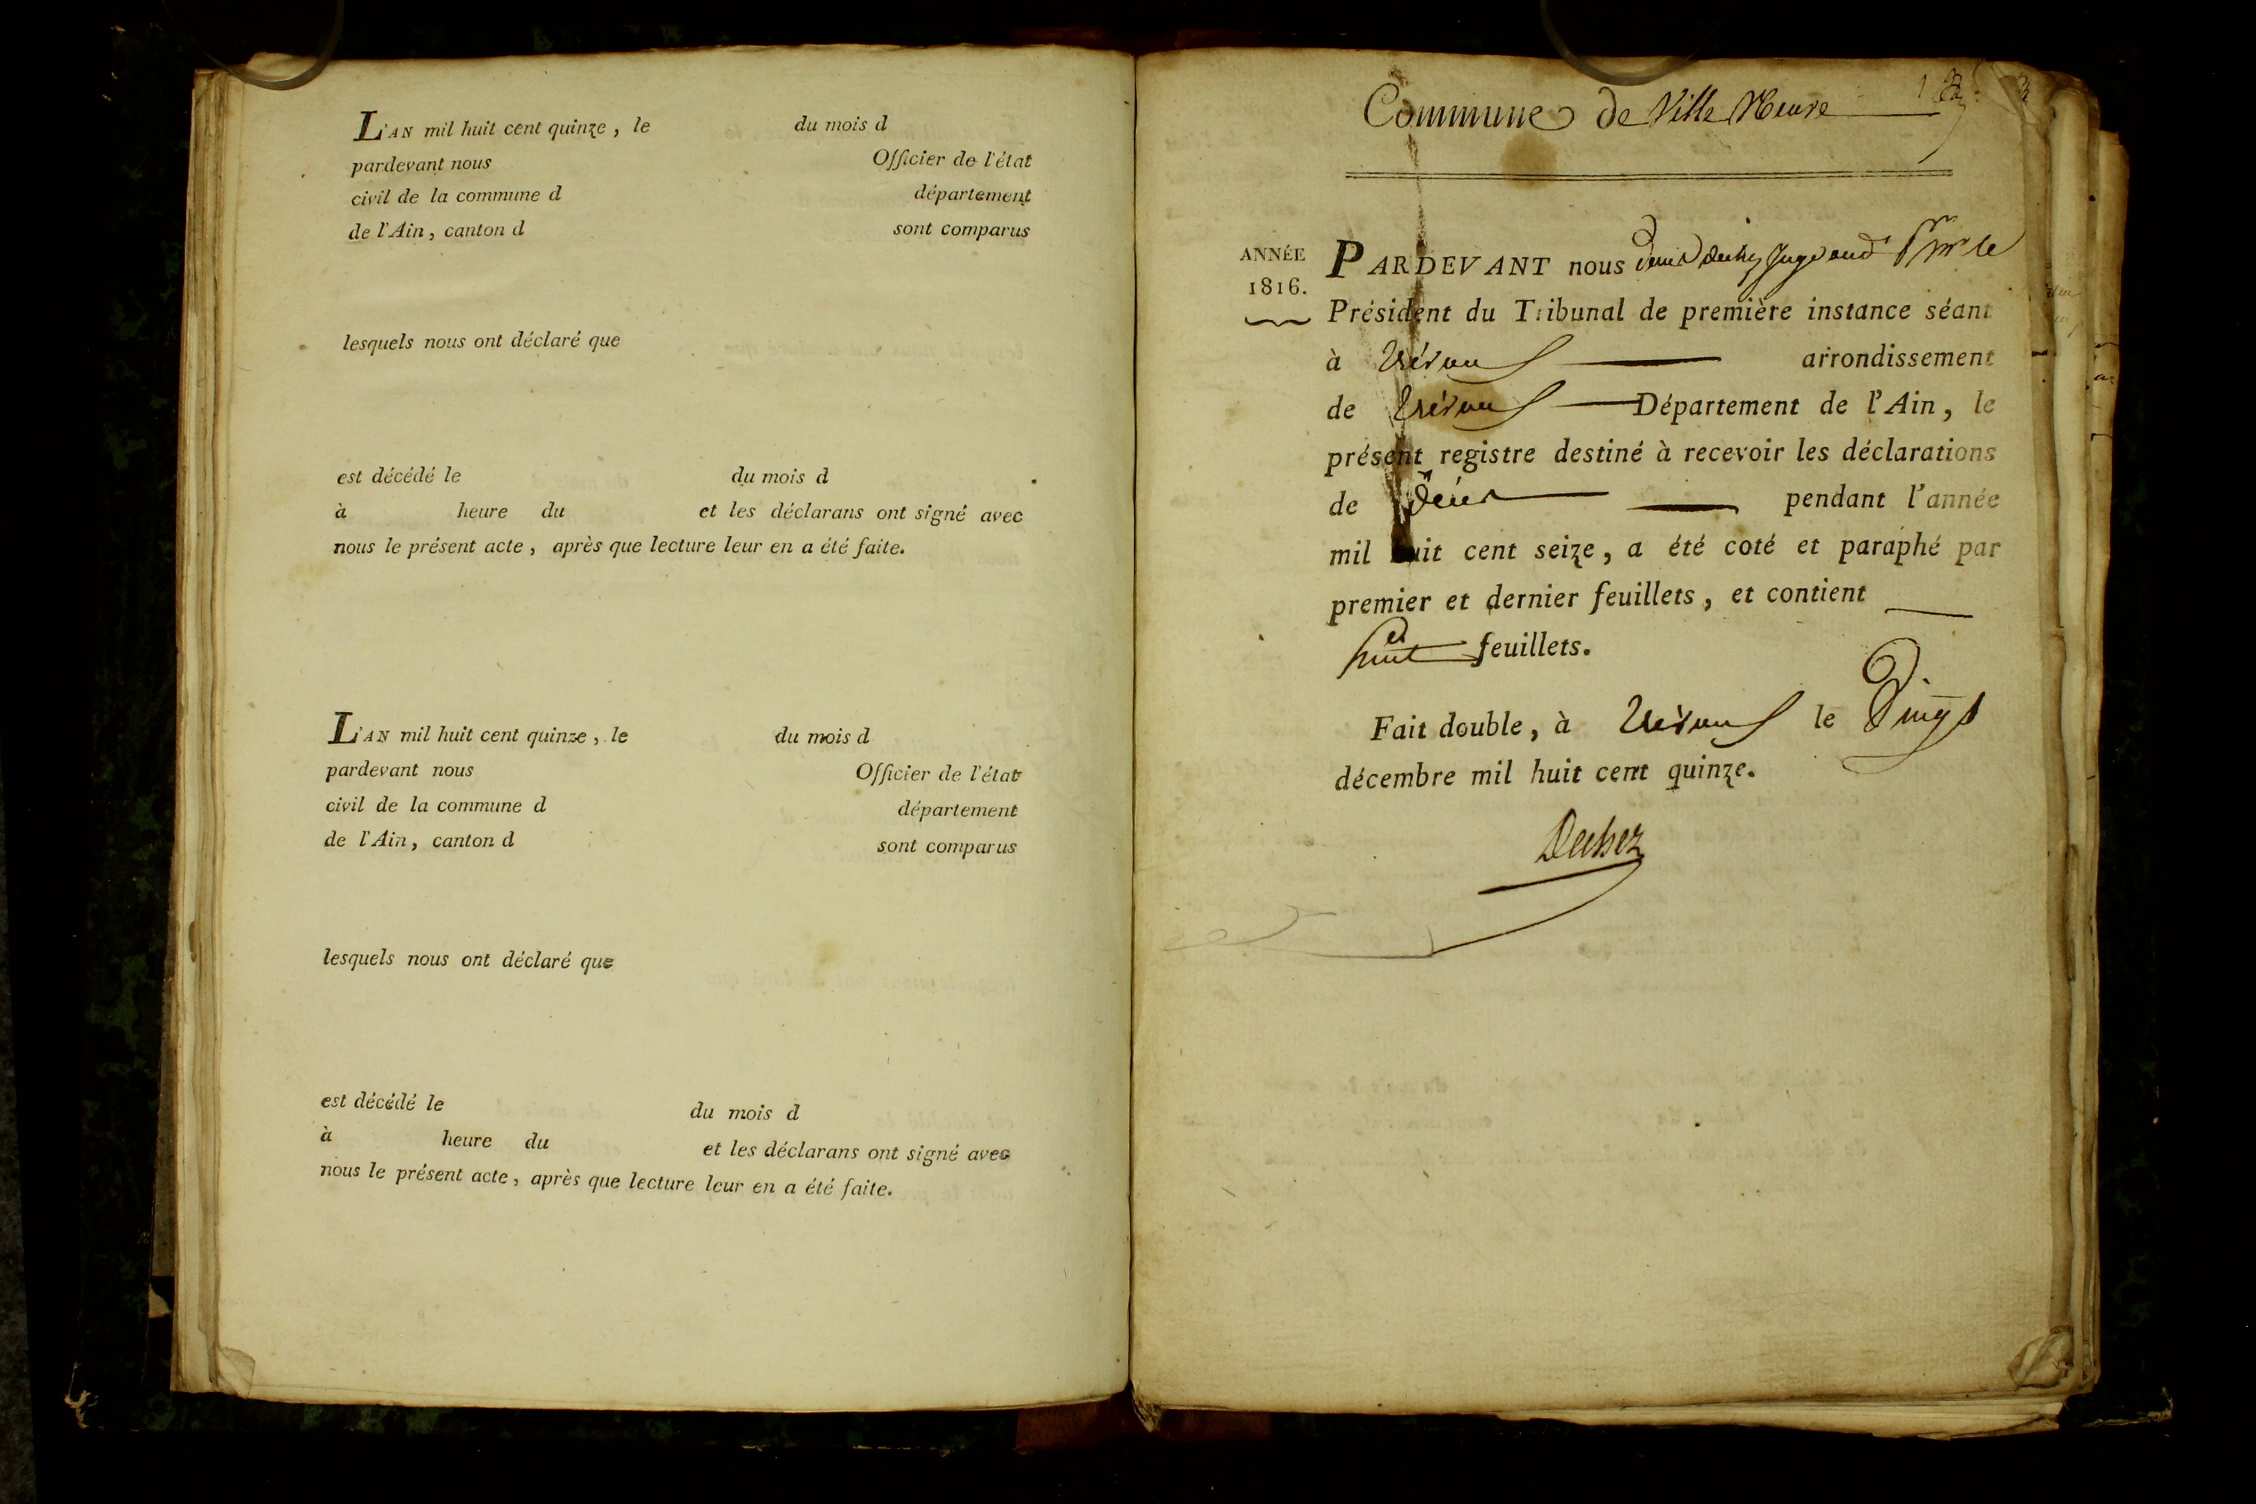 L'AN mil huit cent quinze, le du mois d
pardevant nous Officier de l'état
civil de la commune d département
de l'Ain, canton d sont comparus
lesquels nous ont déclaré que
est décédé le du mois d
à heure du et les déclarans ont signé avec
nous le présent acte, après que lecture leur en a été faite.
L'AN mil huit cent quinze, le du mois d
pardevant nous Officier de l'état
civil de la commune d département
de l'Ain, canton d sont comparus
lesquels nous ont déclaré que
est décédé le du mois d
à heure du et les déclarans ont signé avec
nous le présent acte, après que lecture leur en a été faite.
Commune de Ville Neuve
ANNÉE
1816.
PARDEVANT nous Juge aud le
Président du Tribunal de première instance séant
à Trévoux arrondissement
de Trévoux Département de l'Ain, le
présent registre destiné à recevoir les déclarations
de Décès pendant l'année
mil huit cent seize, a été coté et paraphé par
premier et dernier feuillets, et contient
huit feuillets.
Fait double, à Trévoux le Vingt
décembre mil huit cent quinze.